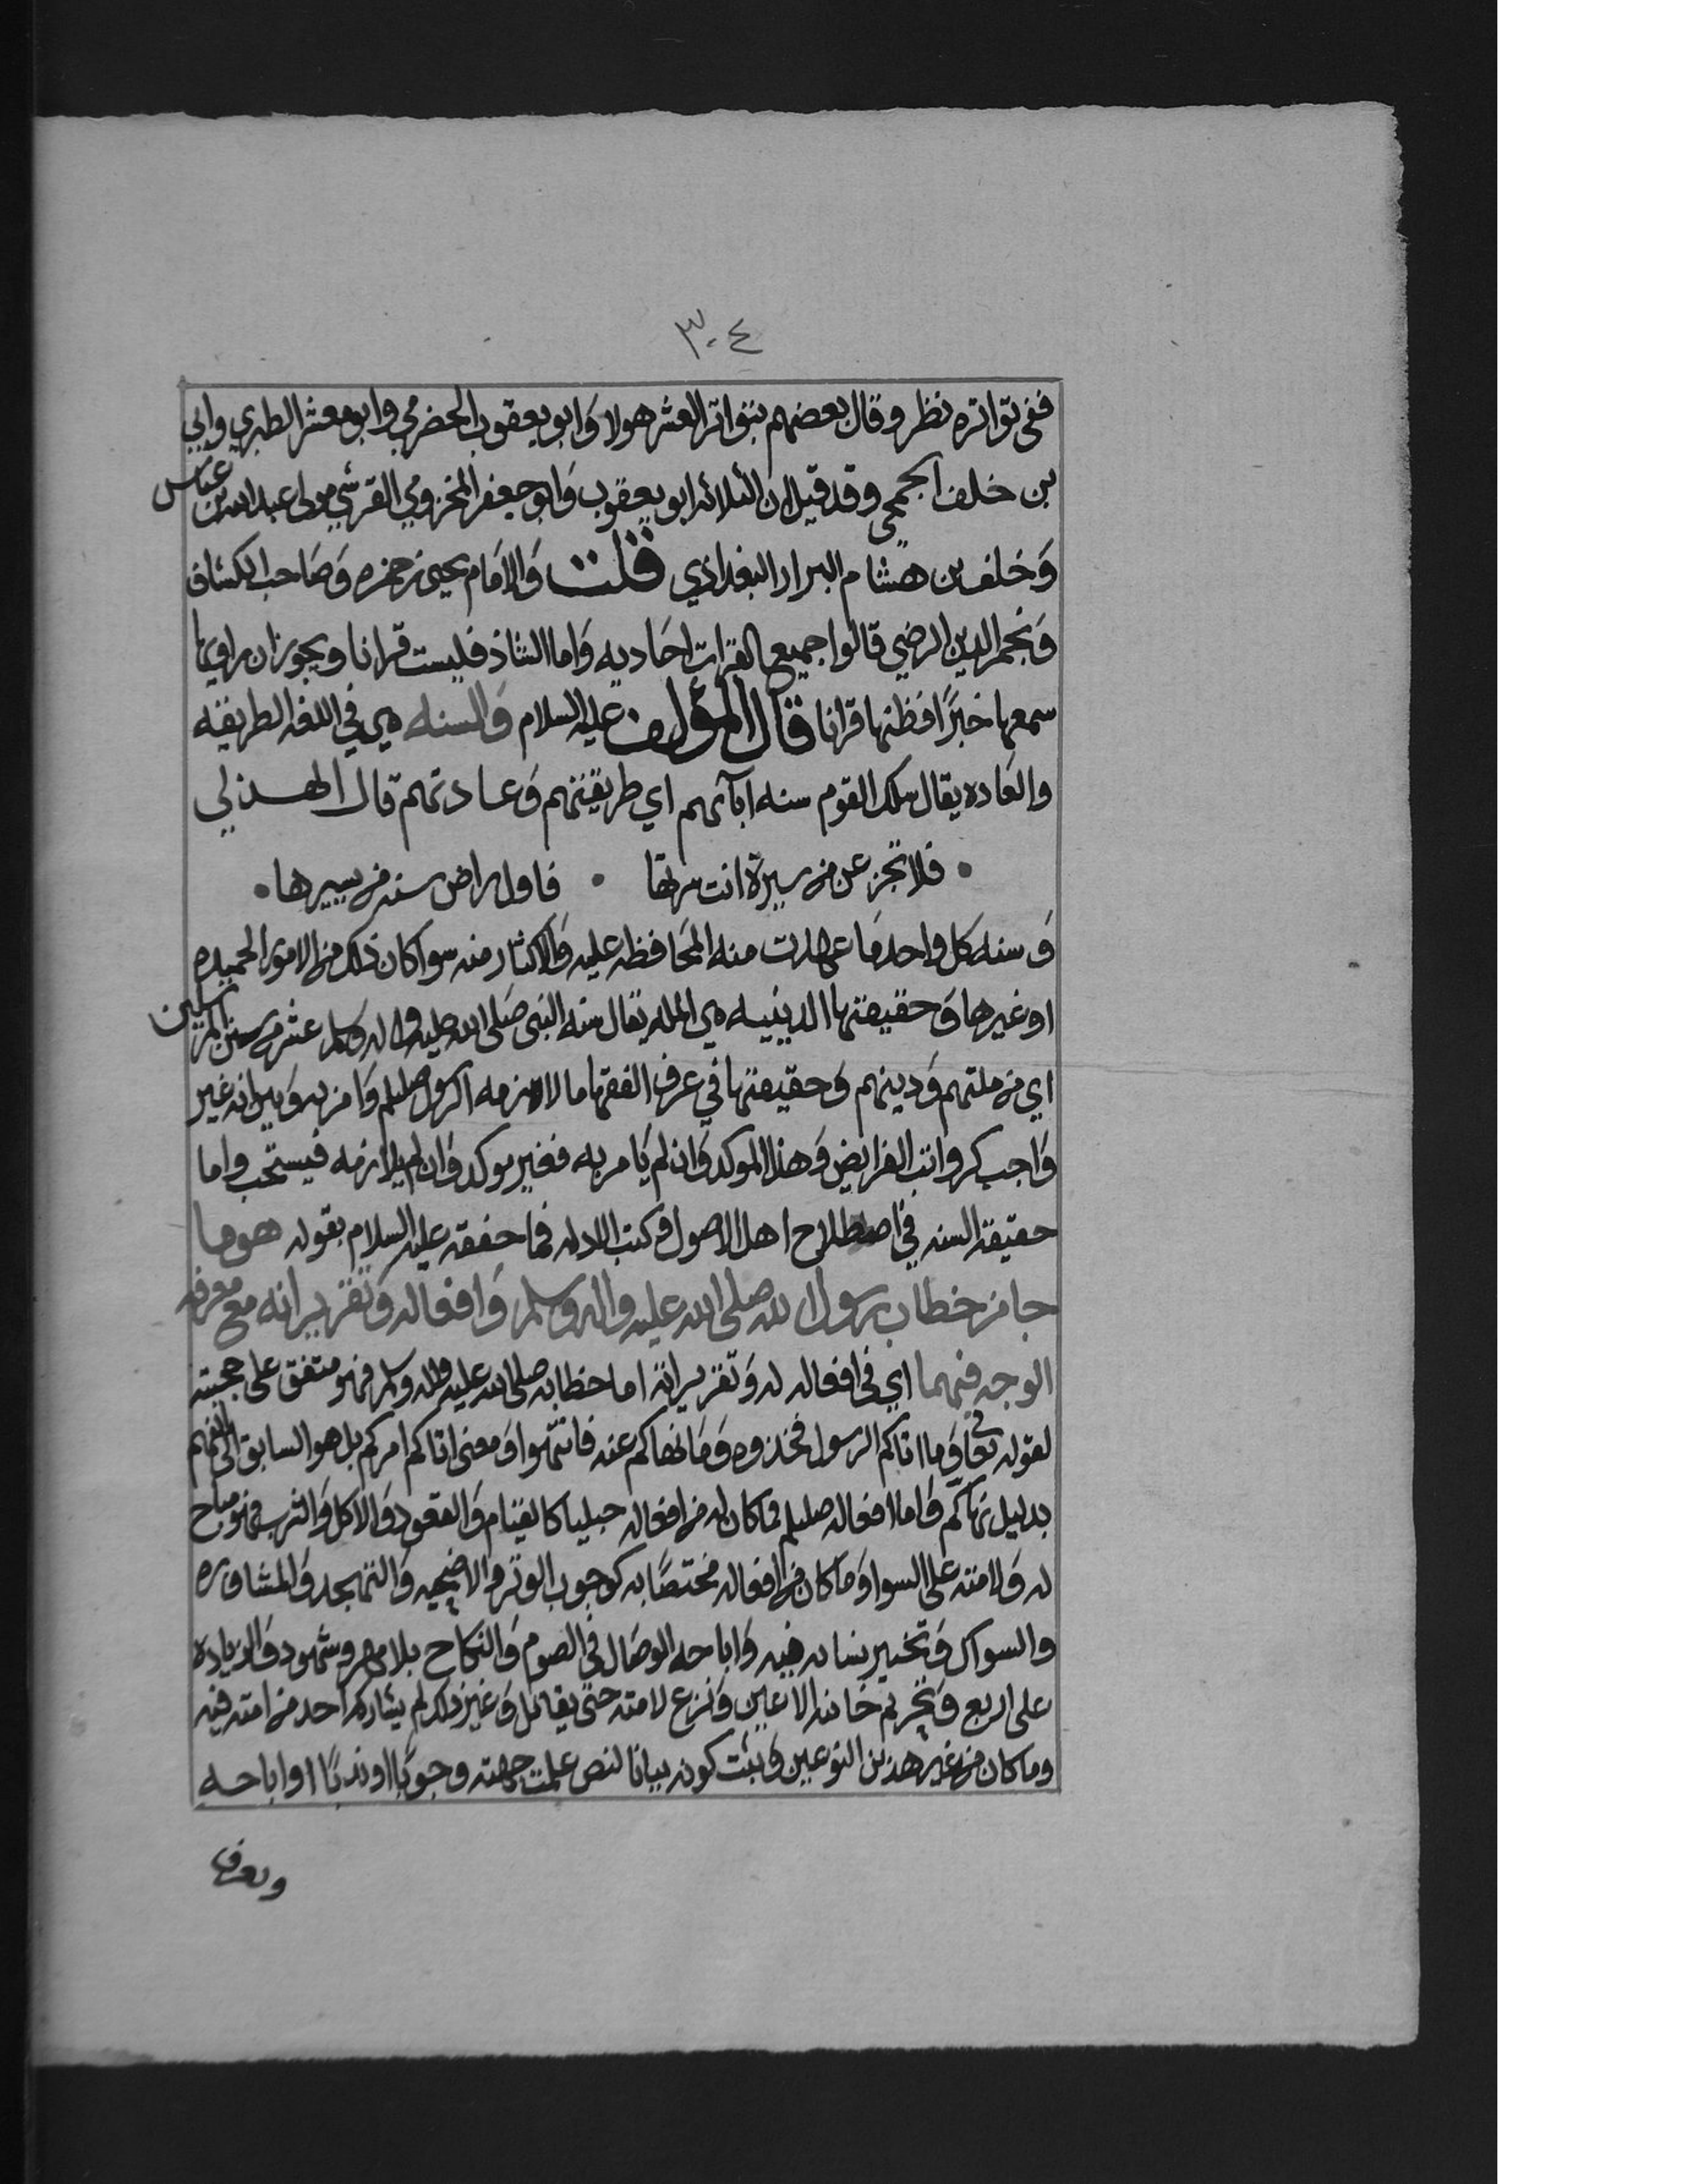 ٣٠٤
ففي تواتره نظر وقال بعضهم بتواتر العشر هولا وابو يعقوب الحضرمي وابو معشر الطبري وابي
بن خلف الجمحي وقد قيل ان الثلاثه ابو يعقوب وابو جعفر المخزومي القرشي مولى عبدالله بن عباس
وخلف بن هشام البزار البغداذي قلت والامام يحيى بن حمزه وصاحب الكشاف
ونجم الدين الرضي قالوا جميع القرات احاديه واما الشاذ فليست قرانا ويجوز ان راويها
سمعها خبرًا فظنها قرانا قال المؤلف عليه السلام والسنه هي في اللغه الطريقه
والعاده يقال سلك القوم سنه ابآئهم اي طريقتهم وعادتهم قال الهذلي
فلا تجزعن من سيرة انت سرتها • فاول راض سنه من يسيرها
وسنه كل واحد ما عهدت منه المحافظه عليه والاكثار منه سوا كان ذلك من الامور الحميده
او غيرها وحقيقتها الدينيه هي المله يقال سنه النبي صلى الله عليه واله وسلم عشر من سنن المرسلين
اي من ملتهم ودينهم وحقيقتها في عرف الفقها ما لازمه الرسول صللم وامر به وبين انه غير
واجب كرواتب الفرايض وهذا الموكد وان لم يامر به فغير موكد وان لم يلازمه فيستحب واما
حقيقة السنه في اصطلاح اهل الاصول وكتب الادله فما حققه عليه السلام بقوله هو ما
جا من خطاب رسول الله صلى الله عليه واله وسلم وافعاله وتقريراته مع معرفه
الوجه فيهما اي في افعاله له وتقريراته اما خطابه صلى الله عليه واله وسلم فهو متفق على حجيته
لقوله تعالى وما اتاكم الرسول فخذوه وما نهاكم عنه فانتهوا ومعنى اتاكم امركم بل هو السابق الى الفهم
بدليل نهاكم واما افعاله صللم فما كان له من افعاله جبليا كالقيام والقعود والاكل والشرب فهو مباح
له ولامته على السوا وما كان من افعاله مختصًا به كوجوب الوتر والاضحيه والتهجد والمشاوره
والسواك وتخيير نسايه فيه واباحه الوصال في الصوم والنكاح بلا مهر وشهود والزياده
على اربع وتحريم خائنه الاعين ونزع لامته حتى يقاتل وغير ذلك لم يشاركه احد من امته فيه
وما كان من غير هذين النوعين وثبت كونه بيانا لنص علمت جهته وجوبًا او ندبًا او اباحه